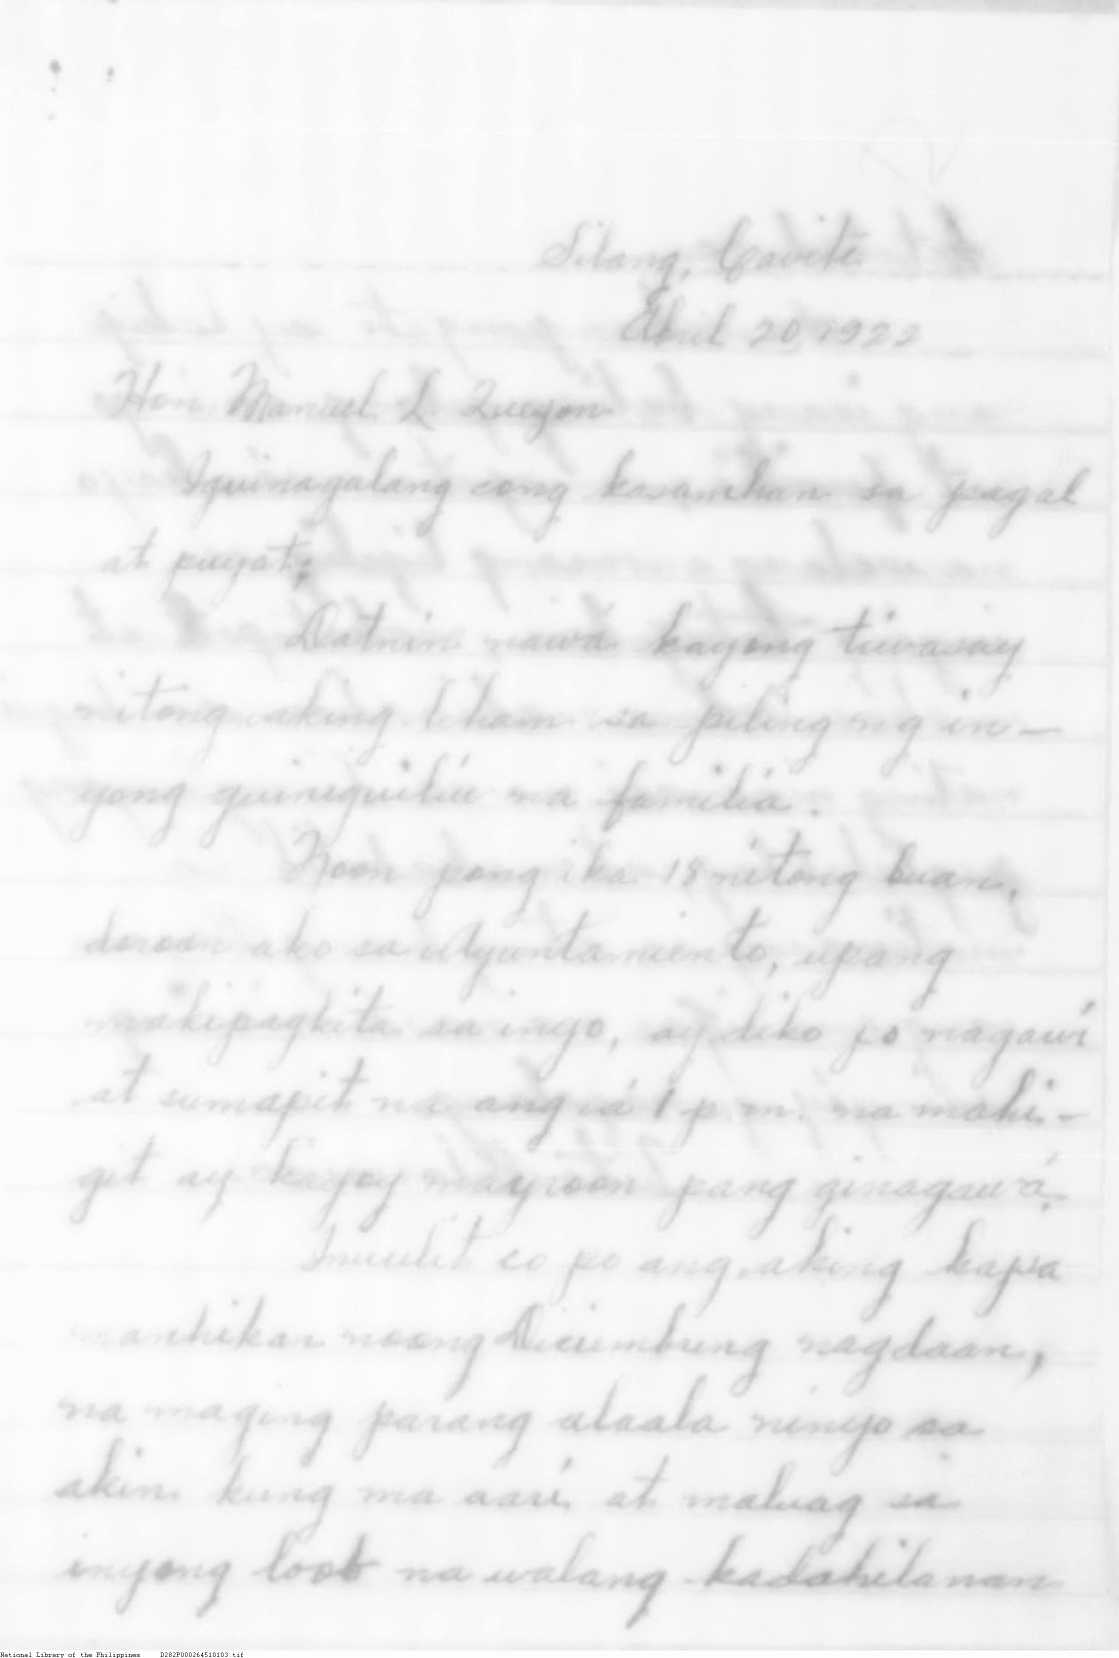 Silang, Cavite
Abril 20, 1922
Hon. Manuel L. Quezon
Iguinagalang cong kasamhan sa pagal
at puyat;
Datnin nawá kayong tiwasay
nitong aking liham sa piling ng in-
yong guinuguiliú na familiá.
Noon pong ika 18 nitong buan,
doroon ako sa Ayuntamiento, upang
makipagkita sa inyo, ay diko po nagawi
at sumapit na ang á 1 p.m. na mahi-
git ay kayoy mayroon pang ginagawá.
Inuulit co po ang aking kapa
manhikan noong Diciembreng nagdaan,
na maging parang alaala ninyo sa
akin kung ma aari, at maluag sa
inyong loob na walang kadahilanan
National Library of the Philippines D282P000264510103.tif